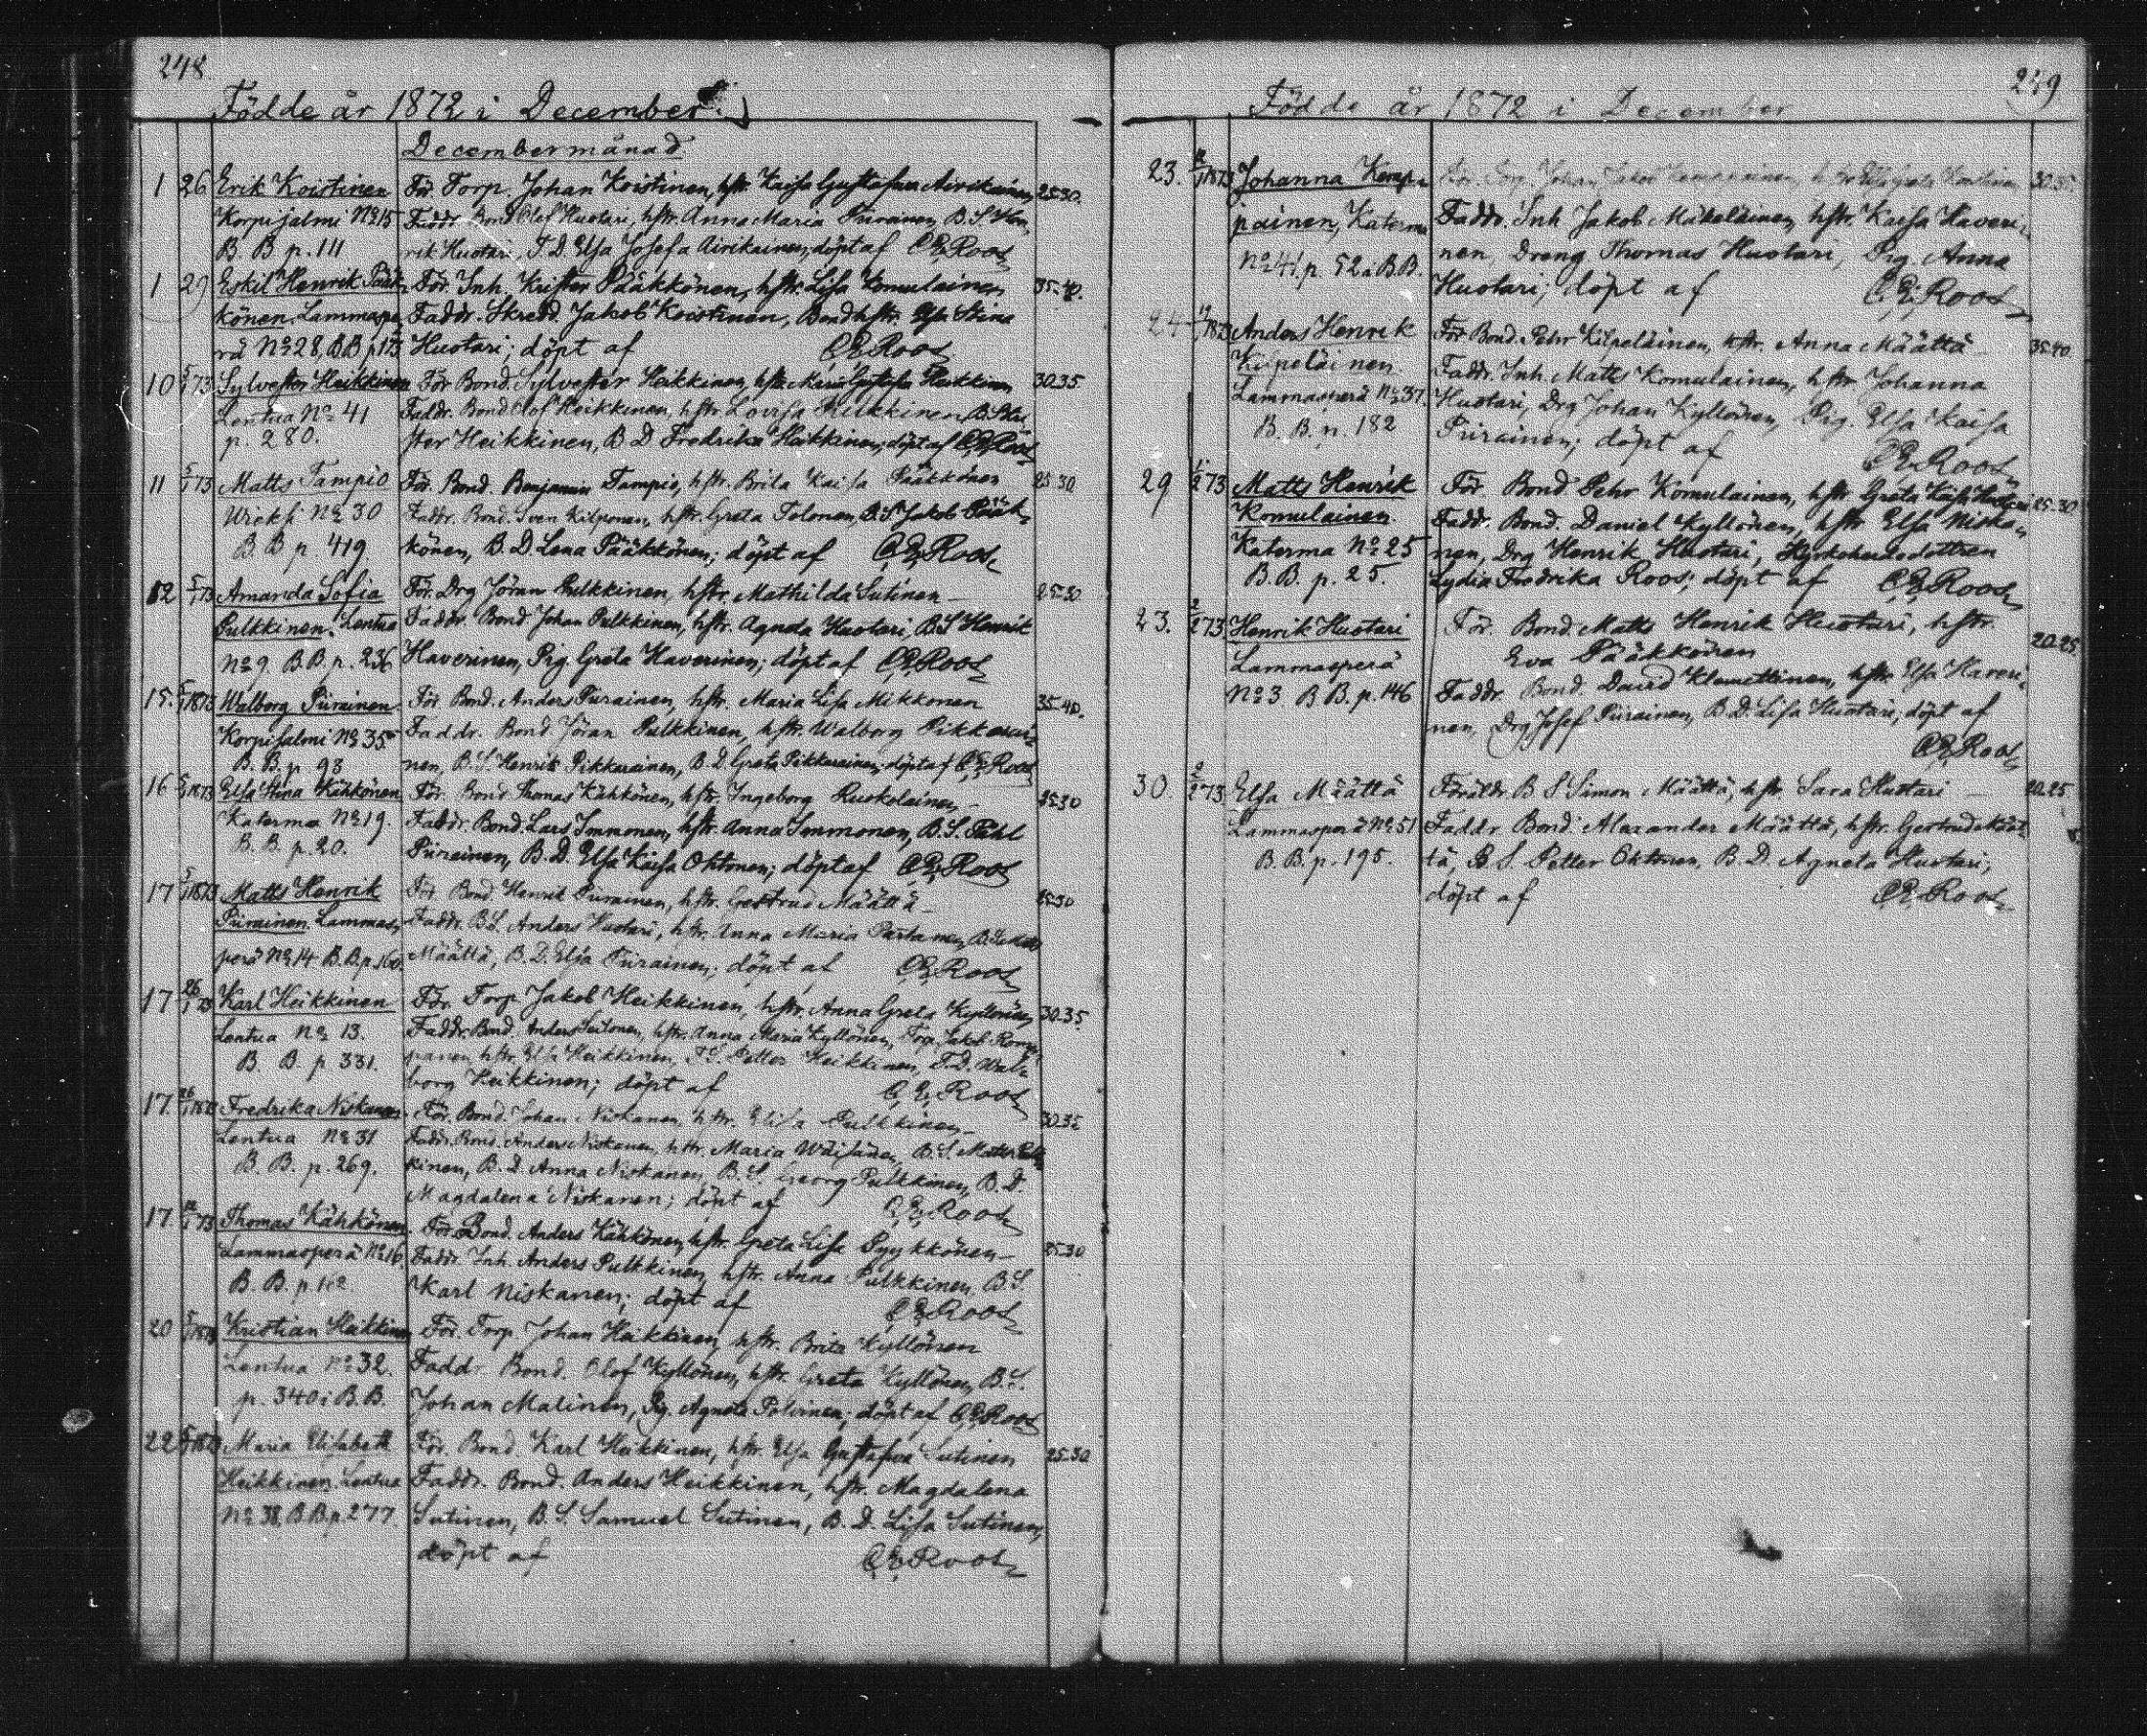 248
Födde år 1872 i December.
Decembermånad
1 26 Erik Koistinen För. Torp. Johan Koistinen, hstr. Kaisa Gustafva Airikainen 25-30.
Korpisalmi No 15 Faddr. Bond. Olof Huotari, hstr. Anna Maria Piirainen, B. S. Hen,
B. B p. 111 rik Huotari, T. D. Elsa Josefa Airikainen; döpt af C. E. Roos
1 29 Eskil Henrik Pääk, För. Inh. Krister Pääkkönen, hstr. Lisa Komulainen 35-40.
könen Lammaspe, Faddr. Skredd. Jakob Koistinen, Bondhstr. Elsa Stina
rä No 28, B B p 173 Huotari; döpt af C. E. Roos
10 5/1 73 Sylvester Heikkinen För. Bond. Sylvester Heikkinen, hstr. Maria Gustafva Heikkinen 30.35
Lentua No 41 Faddr. Bond. Olof Heikkinen, hstr. Lovisa Heikkinen, B. S.
p. 280. ster Heikkinen, B D Fredrika Heikkinen; döpt af C. E. Roos
11 5/1 73 Matts Tampio För. Bond. Benjamin Tampio, hstr. Brita Kaisa Pääkkönen 25 30
Wieksi No 30 Faddr. Bond. Sven Kilponen, hstr. Greta Tolonen, B. S. Jakob Pääk,
B B p. 419 könen, B. D. Lena Pääkkönen; döpt af C. E. Roos
12 5/1 73 Amanda Sofia För. Drg Jöran Pulkkinen, hstr. Mathilda Sutinen 25-30
Pulkkinen. Lentua Faddr. Bond Johan Pulkkinen, hstr. Agneta Huotari, B. S. Henrik
No 9. B. B. p. 236 Haverinen, Pig. Greta Haverinen; döpt af C. E. Roos
15. 5/1 1873 Walborg Piirainen För Bond. Anders Piirainen, hstr. Maria Lisa Mikkonen 35-40.
Korpisalmi No 35 Faddr. Bond Jöran Pulkkinen, hstr. Walborg Pikkarai,
B. B. p 93 nen, B. S. Henrik Pikkarainen, B. D. Greta Pikkarainen; döpt af C. E. Roos
16 5/1 1873 Elsa Stina Kähkönen För. Bond. Thomas Kähkönen, hstr. Ingeborg Ruskolainen 25-30
Katerma No 19. Faddr. Bond. Lars Immonen, hstr. Anna Immonen, B. S. Påhl
B. B p. 20. Piirainen, B. D. Elsa Kaisa Oktonen; döpt af C. E. Roos
17 5/1 1873 Matts Henrik För Bond. Henrik Piirainen, hstr. Gertrud Määttä 25-30
Piirainen Lammas, Faddr. B S. Anders Huotari, hstr. Anna Maria Partanen, B. S.
perä No 14 B. B. p. 160. Määttä, B. D. Elsa Piirainen; döpt af C. E. Roos
17 26/1 73 Karl Heikkinen För. Torp. Jakob Heikkinen, hstr. Anna Greta Kyllönen 30-35
Lentua No 13. Faddr. Bond. Anders Seilonen, hstr. Anna Maria Kyllönen, Torp. Jakob
B B. p. 331. hstr. Elsa Heikkinen, T. S. Petter Heikkinen, T. D. Wal,
borg Heikkinen; döpt af C. E. Roos
17. 26/1 1873 Fredrika Niskanen För. Bond. Johan Niskanen, hstr. Elisa Pulkkinen 30.35
Lentua No 31 Faddr. Bond. Anders Niskanen, hstr. Maria Wäisänen, B. S. Matts Pulk,
B. B. p. 269. kinen, B. D. Anna Niskanen, B. S. Georg Pulkkinen, B. D.
Magdalena Niskanen; döpt af C. E. Roos
17. 12/1 73 Thomas Kähkönen För. Bond. Anders Kähkönen, hstr. Greta Lisa Pyykkönen 25-30
Lammasperä No 16. Faddr. Inh. Anders Pulkkinen, hstr. Anna Pulkkinen, B. S.
B. B. p. 162. Karl Niskanen; döpt af C. E. Roos
20 5/1 1873 Kristian Heikkinen För. Torp. Johan Heikkinen, hstr. Brita Kyllönen
Lentua No 32. Faddr. Bond. Olof Kyllönen, hstr. Greta Kyllönen, B. S.
p. 340 i B. B. Johan Malinen, Pig. Agneta Polvinen; döpt af C. E. Roos
22 5/1 1873 Maria Elisabeth För. Bond. Karl Heikkinen, hstr. Elsa Gustafva Sutinen 25-30
Heikkinen Lentua Faddr. Bond. Anders Heikkinen, hstr. Magdalena
No 38, B. B. p 277. Sutinen, B. S. Samuel Sutinen, B. D. Lisa Sutinen;
döpt af C. E. Roos
249
Födde år 1872 i December
23. 12/1 1873 Johanna Kemp, För. Johan Jakob Kemppainen, hstr. Elsa Greta 30.35
painen, Katerma Faddr. Inh Jakob Mäkeläinen, hstr. Kaisa Haveri,
No 41. p. 52 i B. B. nen, Dreng Thomas Huotari, Pig. Anna
Huotari; döpt af C. E. Roos
24 1873 Anders Henrik För Bond. Pehr Kilpeläinen, hstr. Anna Määttä 35.40.
Kilpeläinen Faddr. Inh. Matts Komulainen, hstr. Johanna
Lammasperä No 37. Huotari, Drg Johan Kyllönen, Pig. Elsa Kaisa
B. B. p. 182 Piirainen; döpt af C. E. Roos
29 2 73 Matts Henrik För. Bond Pehr Komulainen, hstr Greta Kaisa 25-30
Komulainen. Faddr. Bond. Daniel Kyllönen, hstr Elsa Niska,
Katerma No 25 nen, Drg Henrik Huotari, Kyrkoherdedottren
B. B. p. 25. Lydia Fredrika Roos; döpt af C. E. Roos
23. 2/2 73 Henrik Huotari För. Bond. Matts Henrik Huotari, hstr. 20-25.
Lammasperä Eva Pääkkönen
No 3 B B. p. 146 Faddr. Bond. David Klemettinen, hstr. Elsa Haveri,
nen, Drg Josef Piirainen, B. D. Lisa Huotari; döpt af
C. E. Roos
30. 2/2 73 Elsa Määttä Föräldr. B. S. Simon Määttä, hstr Sara Huotari 20.25
Lammasperä No 51 Faddr. Bond. Alexander Määttä, hstr. Gertrud Määt,
B. B. p. 195. tä, B. S. Petter Oktonen, B. D. Agneta Huotari;
döpt af C. E. Roos